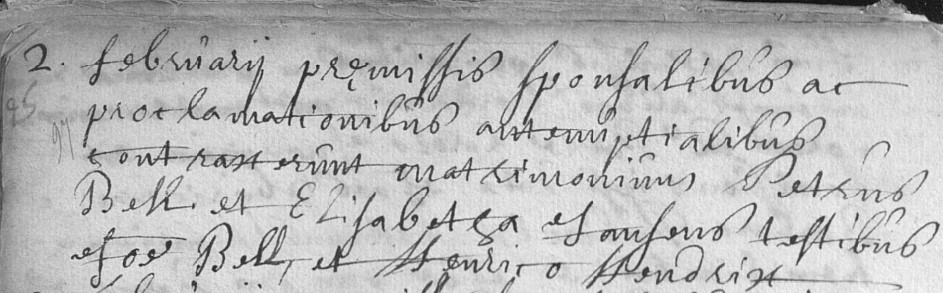 2. februarij pręmissis sponsalibus ac
proclamationibus antenuptialibus
contraxerunt matrimonium Petrus
Bell et Elisabetha Jansens testibus
Joe Bell, et Henrico Hendrix